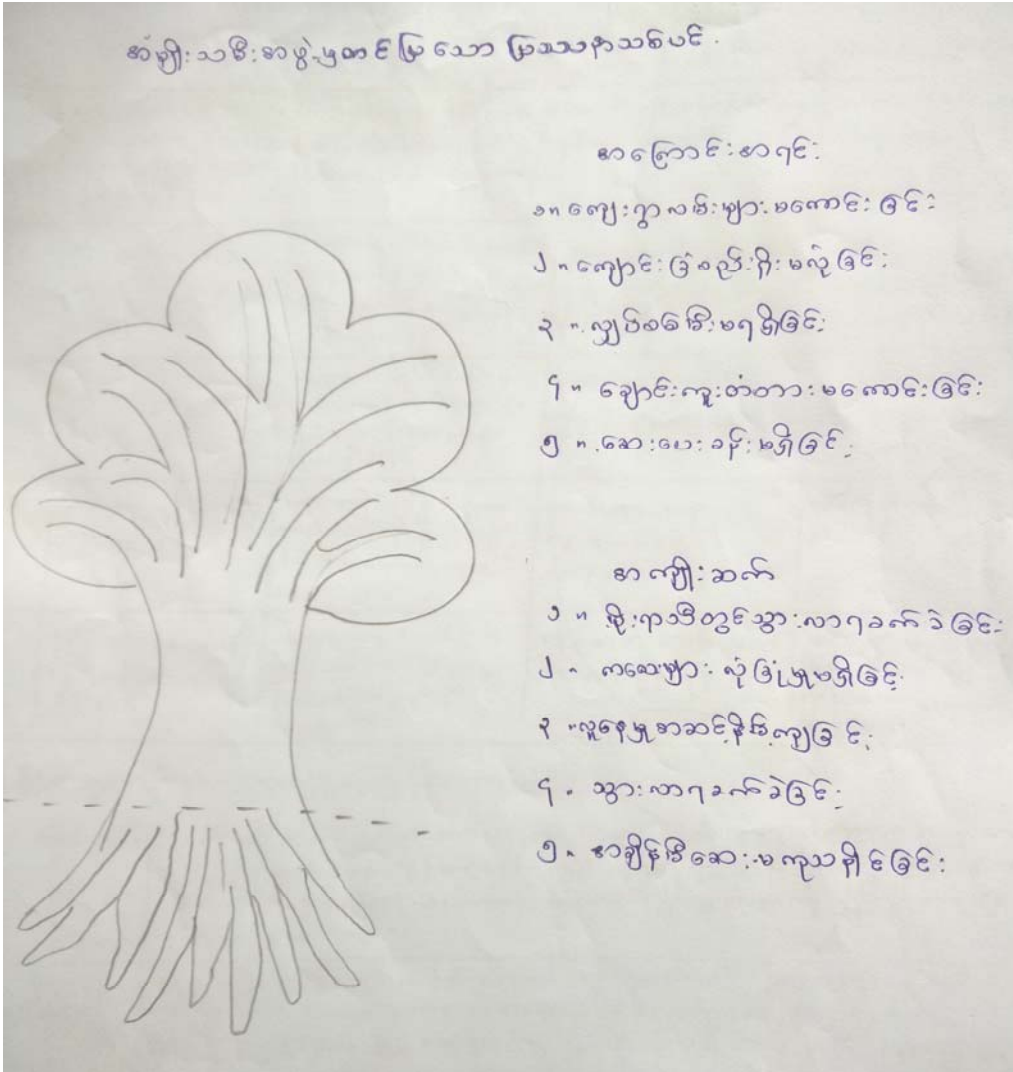 အမျိုးသမီးအဖွဲ့မှတင်ပြသော ပြဿနာသစ်ပင်.
အကြောင်းအရင်း
၁။ ကျေးရွာလမ်းများမကောင်းခြင်း
၂။ ကျောင်းခြံစည်းရိုးမလုံခြင်း
၃။ လျှပ်စစ်မီးမရရှိခြင်း
၄။ ချောင်းကူးတံတားမကောင်းခြင်း
၅။ ဆေးပေးခန်းမရှိခြင်း
အကျိုးဆက်
၁။ မိုးရာသီတွင်သွားလာရခက်ခဲခြင်း
၂။ ကလေးများလုံခြုံမှုမရှိခြင်း
၃။ လူနေမှုအဆင့်နိမ့်ကျခြင်း
၄။ သွားလာရခက်ခဲခြင်း
၅။ အချိန်မီဆေးမကုသနိုင်ခြင်း